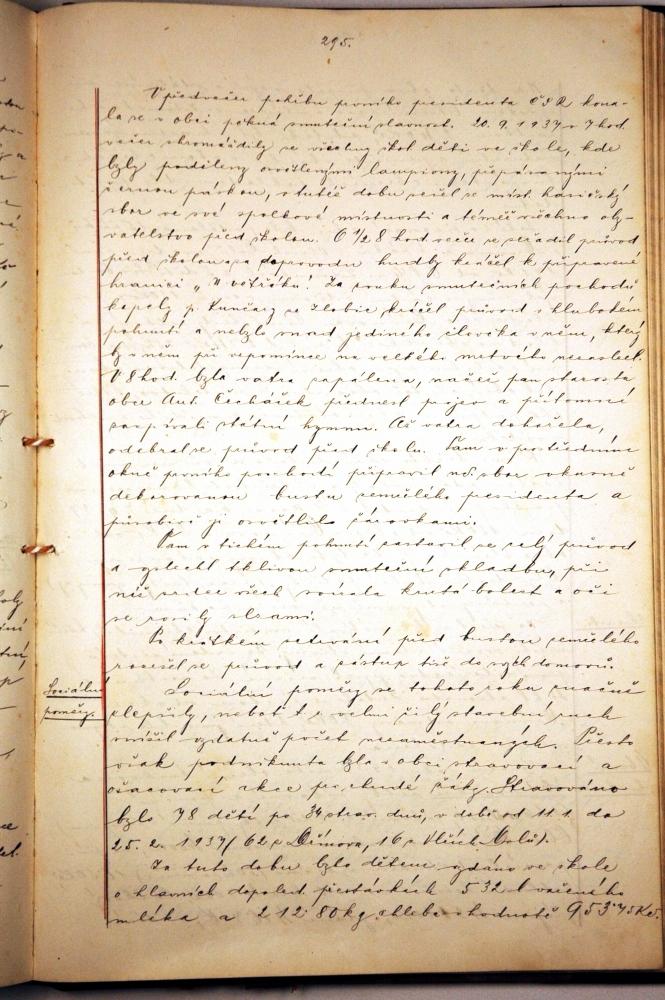 295.
V předvečer pohřbu prvního presidenta ČSR kona-
la se v obci pěkná smuteční slavnost. 20. 9. 1937 v 7 hod.
večer shromáždily se všechny škol. děti ve škole, kde
byly poděleny osvětlenými lampiony, přepásanými
černou páskou, v tutéž dobu sešel se míst. hasičský
sbor ve své spolkové místnosti a téměř všechno oby-
vatelstvo před školou. O 1/2 8 hod. večer se seřadil průvod
před školou a za doprovodu hudby kráčel k připravené
hranici „U větřáku". Za zvuku smutečních pochodů
kapely p. Kunčara ze Zlobic kráčel průvod v hlubokém
pohnutí a nebylo snad jediného člověka v něm, který
by v něm při vzpomínce na velkého mrtvého nezaslzel.
V 8 hod. byla vatra zapálena, načež pan starosta
obce Ant. Čecháček přednesl projev a přítomní
zazpívali státní hymnu. Až vatra dohořela,
odebral se průvod před školu. Tam v prostředním
okně prvního poschodí připravil uč. sbor vkusně
dekorovanou bustu zemřelého presidenta a
působivě ji osvětlil žárovkami.
Tam v tichém pohnutí zastavil se celý průvod
a vyslechl tklivou smuteční skladbu, při
níž srdce všech svírala krutá bolest a oči
se rosily slzami.
Po krátkém setrvání před bustou zemřelého
rozešel se průvod a zástup tiše do svých domovů.
Sociální
poměry.
Sociální poměry se tohoto roku značně
zlepšily, neboť t. r. velmi čilý stavební ruch
snížil vydatně počet nezaměstnaných. Přesto
však podniknuta byla v obci stravovací a
ošacovací akce pro chudé žáky. Stravováno
bylo 78 dětí po 34 strav. dnů, v době od 11. 1. do
25. 2. 1937 (62 z Dřínova, 16 z Vlčích Dolů).
Za tuto dobu bylo dětem vydáno ve škole
o hlavních dopoled. přestávkách 532 l vařeného
mléka a 212·80 kg chleba v hodnotě 953·75 Kč.